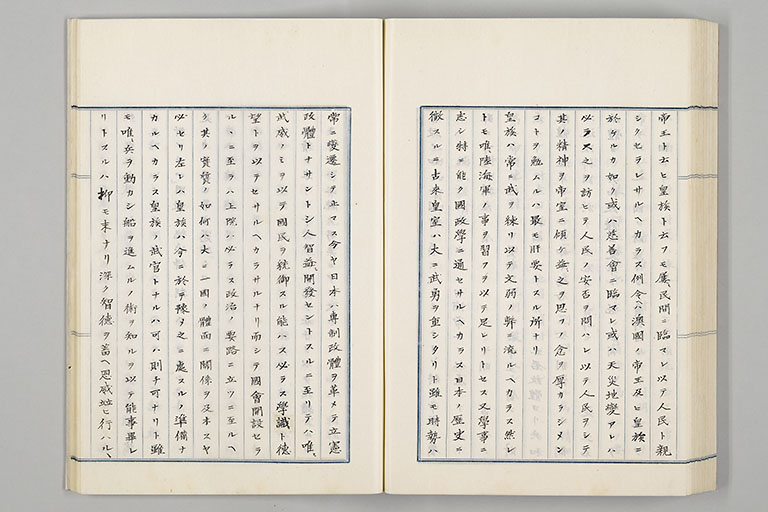 帝王ト云ヒ皇族ト云フモ屢民間ニ臨マレ以テ人民ト親
シクセラレサルヘカラス例令ハ澳國ノ帝王及ヒ皇族ニ
於ケルカ如ク或ハ慈善會ニ臨マレ或ハ天災地變アレハ
必ラス之ヲ訪ヒテ人民ノ安否ヲ問ハレ以テ人民ヲシテ
其ノ精神ヲ帝室ニ傾ケ益之ヲ思フノ念ヲ厚カラシメン
コトヲ勉ムルハ最モ肝要トスル所ナリ
皇族ハ常ニ武ヲ練リ以テ文弱ノ弊ニ流ルヘカラス然レ
トモ唯陸海軍ノ事ヲ習フヲ以テ足レリトセス又學事ニ
志シ特ニ能ク國政學ニ通セサルヘカラス日本ノ歴史ニ
徴スルニ古来皇室ハ大ニ武勇ヲ重シタリト雖モ時勢ハ
常ニ變遷シテ止マス今ヤ日本ハ專制政體ヲ革メテ立憲
政體トナサントシ人智益開發セントスルニ至リテハ唯
武威ノミヲ以テ國民ヲ統御スル能ハス必ラス學識ト德
望トヲ以テセサルヘカラサルナリ而シテ國會開設セラ
ルヽニ至ラハ上院ハ必ラス政治ノ要路ニ立ツニ至ルヘ
ク其ヲ實質ノ如何ハ大ニ一國ノ體面ニ關係ヲ及ホスヤ
必セリ左レハ皇族ハ今ニ於テ豫メ之ニ處スルノ準備ナ
カルヘカラス皇族ノ武官トナルハ可ハ則チ可ナリト雖
モ唯兵ヲ動カシ船ヲ進ムルノ術ヲ知ルヲ以テ能事畢レ
リトスルハ抑モ末ナリ深ク智德ヲ蓄ヘ恩威竝ヒ行ハルヽ